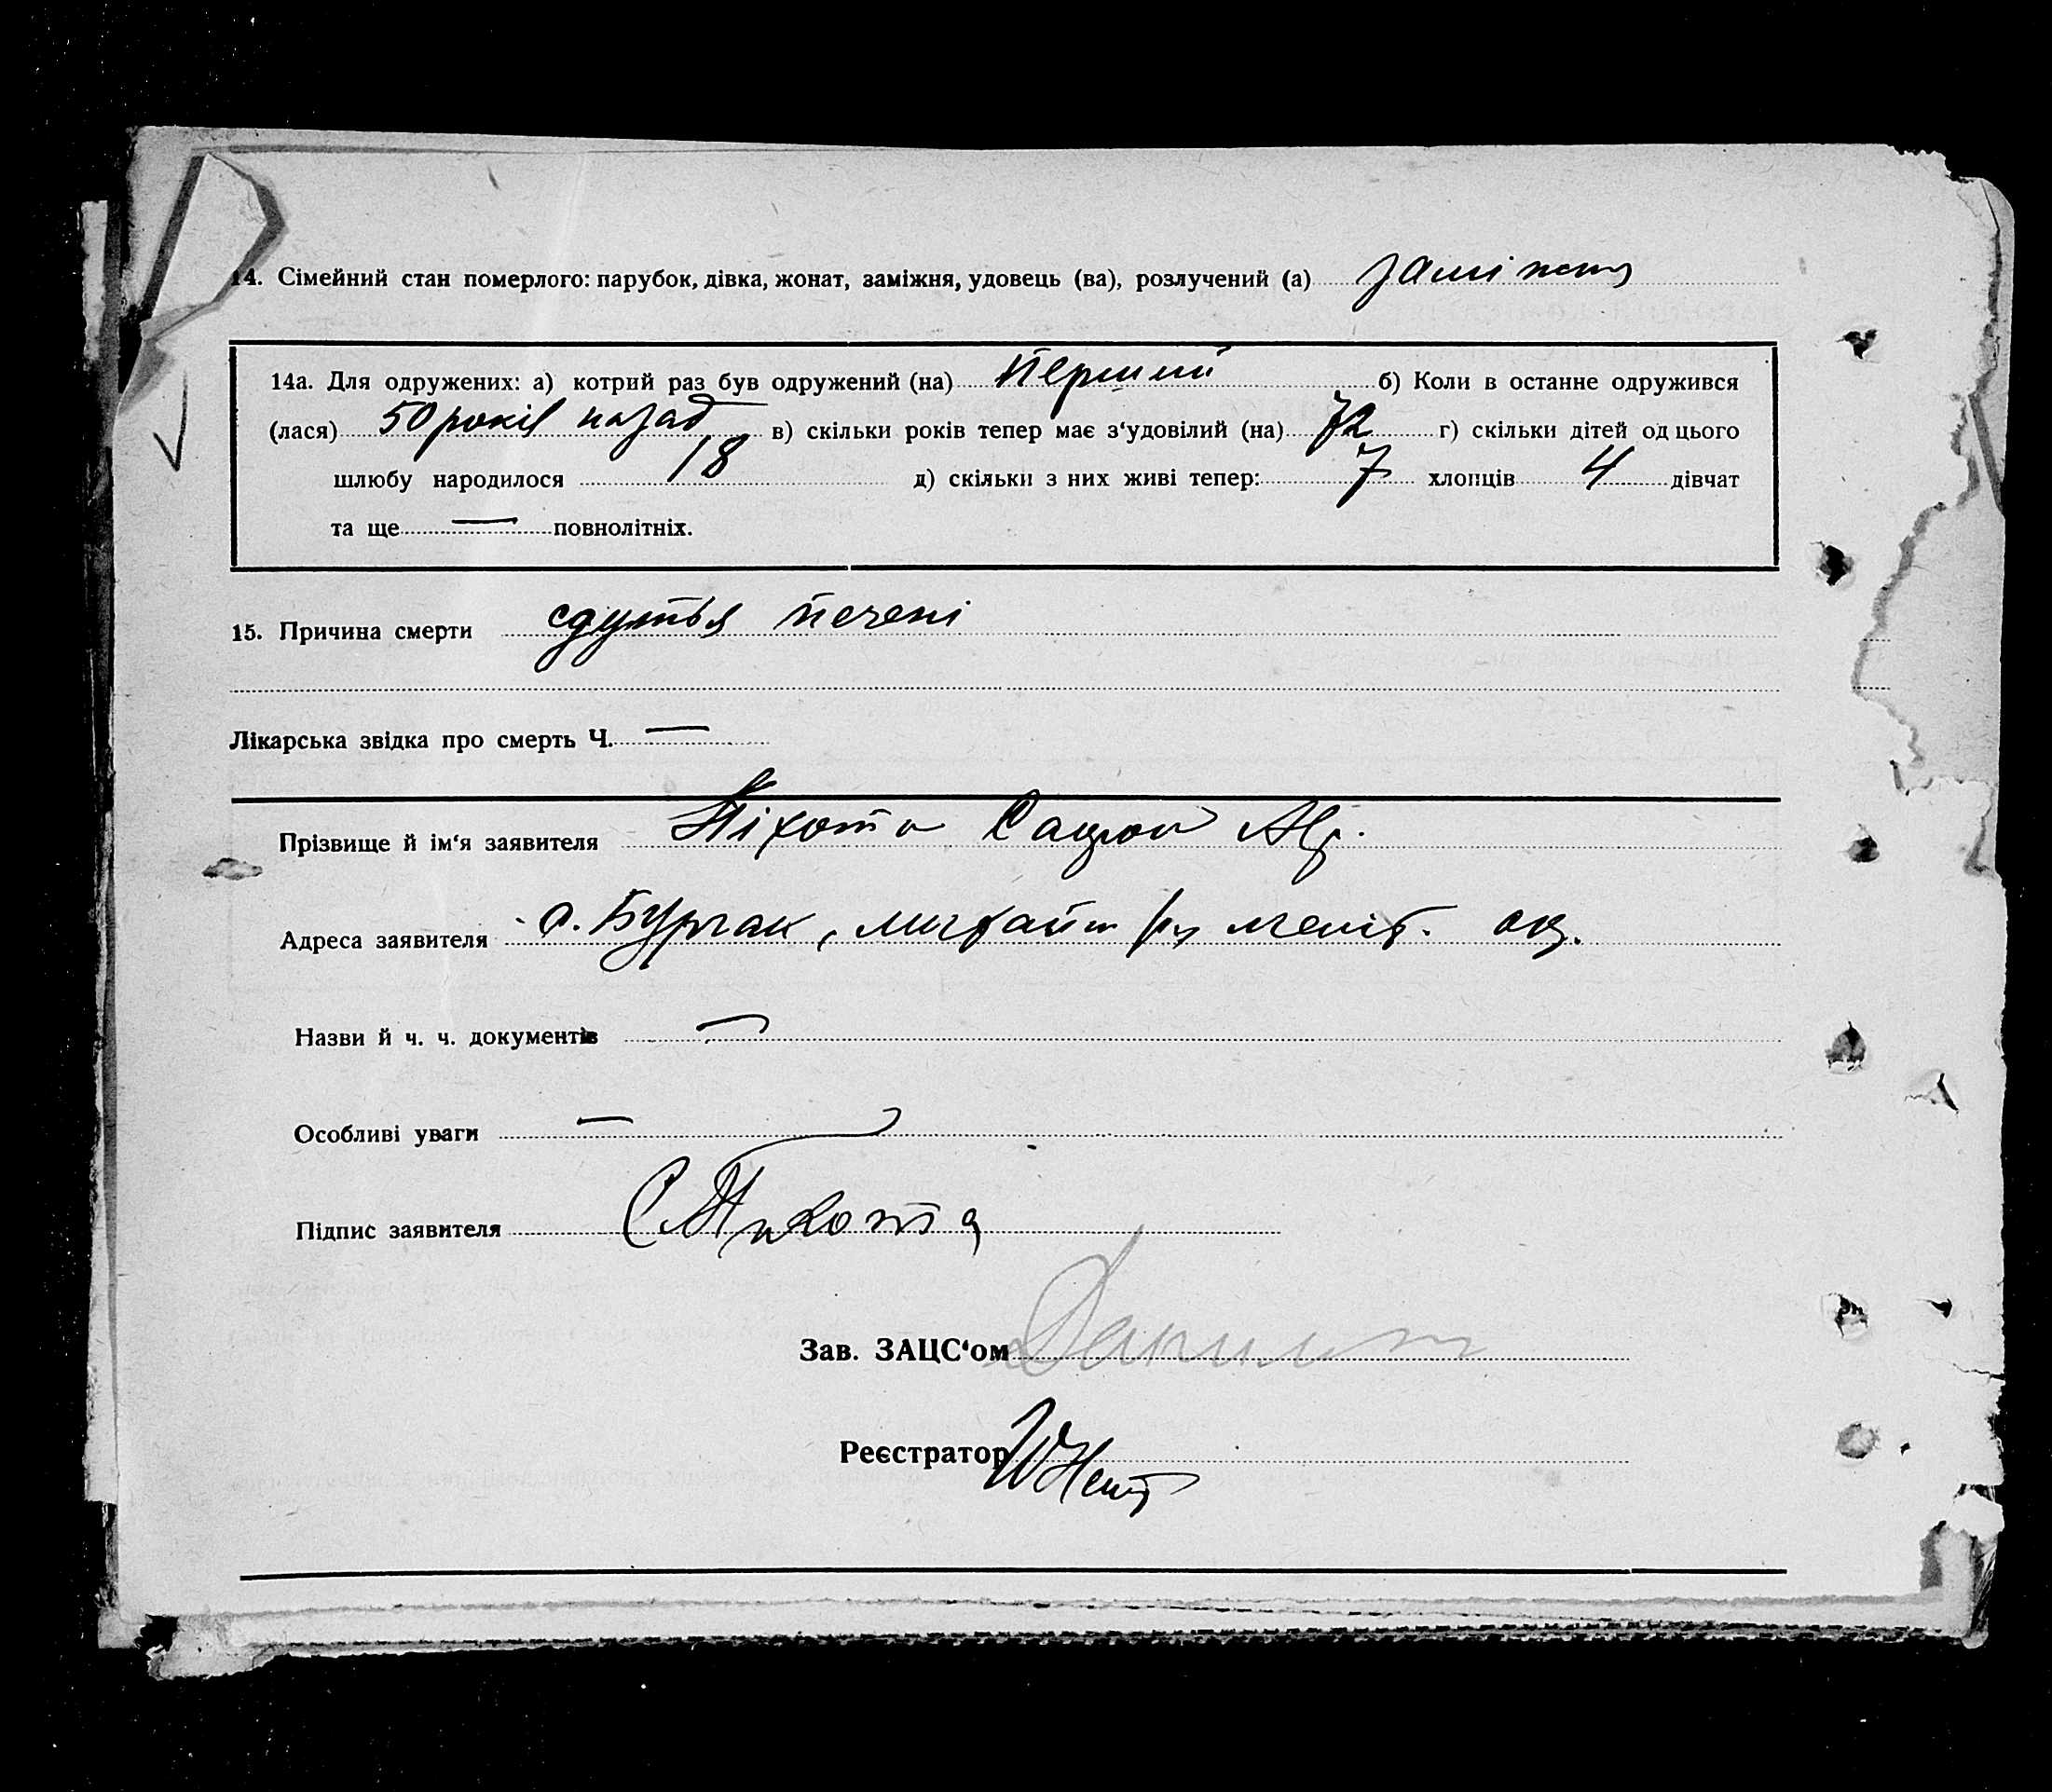 14. Сімейний стан померлого: парубок, дівка, жонат, заміжня, удовець (ва), розлучений (а) заміжня
14а. Для одружених: а) котрий раз був одружений (на) перший б) Коли в останне одружився
(лася) 50 років назад в) скільки років тепер має з‘удовілий (на) 72 г) скільки дітей од цього
шлюбу народилося 18 д) скільки з них живі тепер: 7 хлопців 4 дівчат
та ще — повнолітніх.
15. Причина смерти здуття печені
Лікарська звідка про смерть Ч. —
Прізвище й ім‘я заявителя Піхота
Адреса заявителя с. Бурчак, ок.
Назви й ч. ч. документів —
Особливі уваги —
Підпис заявителя С Пихота
Зав. ЗАЦС‘ом
Реєстратор